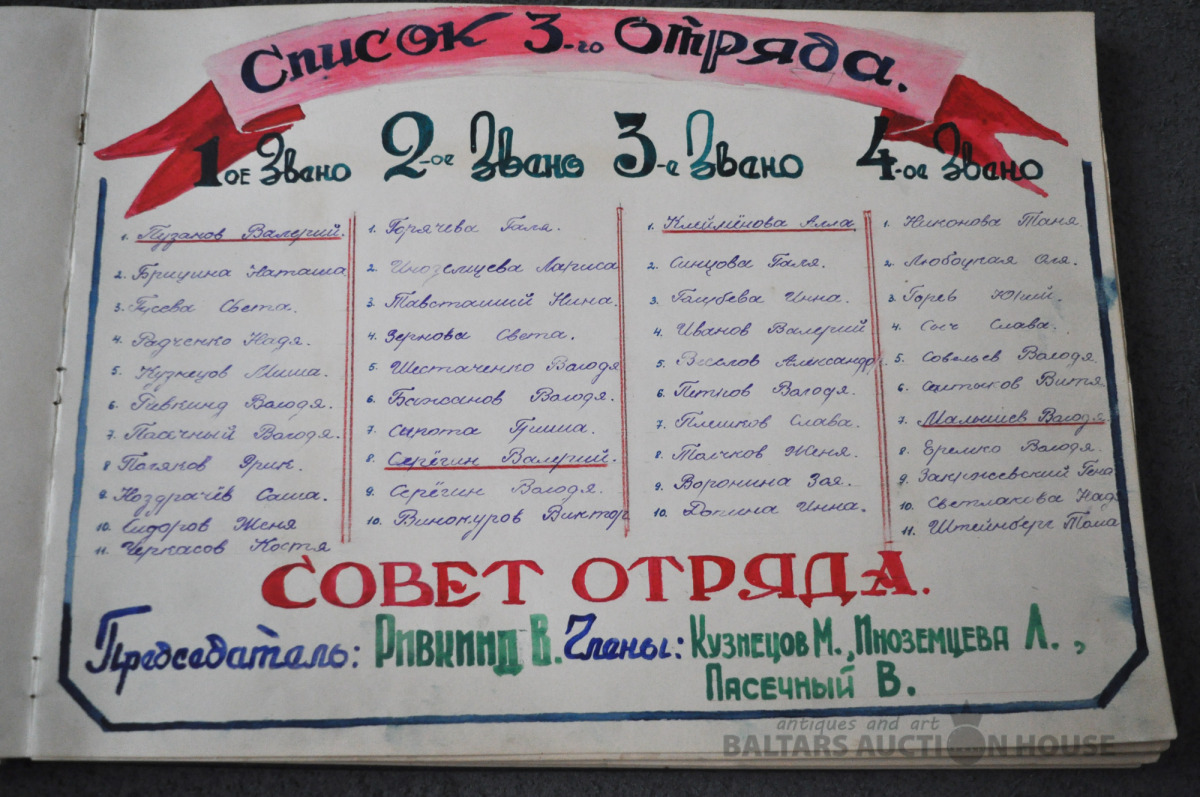 Список 3-го Отряда.
1ое Звено
1. Пузанов Валерий.
2. Брицина Наташа
3. Гусева Света.
4. Радченко Надя.
5. Кузнецов Миша.
6. Ривкинд Володя.
7. Пасечный Володя.
8. Поляков Эрик.
9. Ноздрачёв Саша.
10. Сидоров Женя
11. Черкасов Костя
2-ое Звено
1. Горячева Галя.
2. Иноземцева Лариса
3. Нина.
4. Зернова Света.
5. Шестаченко Володя
6. Бажанов Володя.
7. Сирота Гриша.
8. Серёгин Валерий.
9. Серёгин Володя.
10. Винокуров Виктор
3-е Звено
1. Клеймёнова Алла
2. Синцова Галя.
3. Голубева Инна.
4. Иванов Валерий
5. Веселов Александр
6. Петков Володя.
7. Плешков Слава.
8. Толчков Женя.
9. Воронина Зоя.
10. Допина Инна.
4-ое Звено
1. Никонова Таня
2. Любоцкая Оля.
3. Горев Юрий.
4. Сыч Слава.
5. Савельев Володя
6. Салтыков Витя
7. Малышев Володя
8. Еремко Володя.
9. Закржевский Гена
10. Светлакова Надя
11. Штейнберг Тома
СОВЕТ ОТРЯДА.
Председатель: РИВКИНД В. Члены: КУЗНЕЦОВ М., ИНОЗЕМЦЕВА Л.,
ПАСЕЧНЫЙ В.
antiques and art
BALTARS AUCTION HOUSE